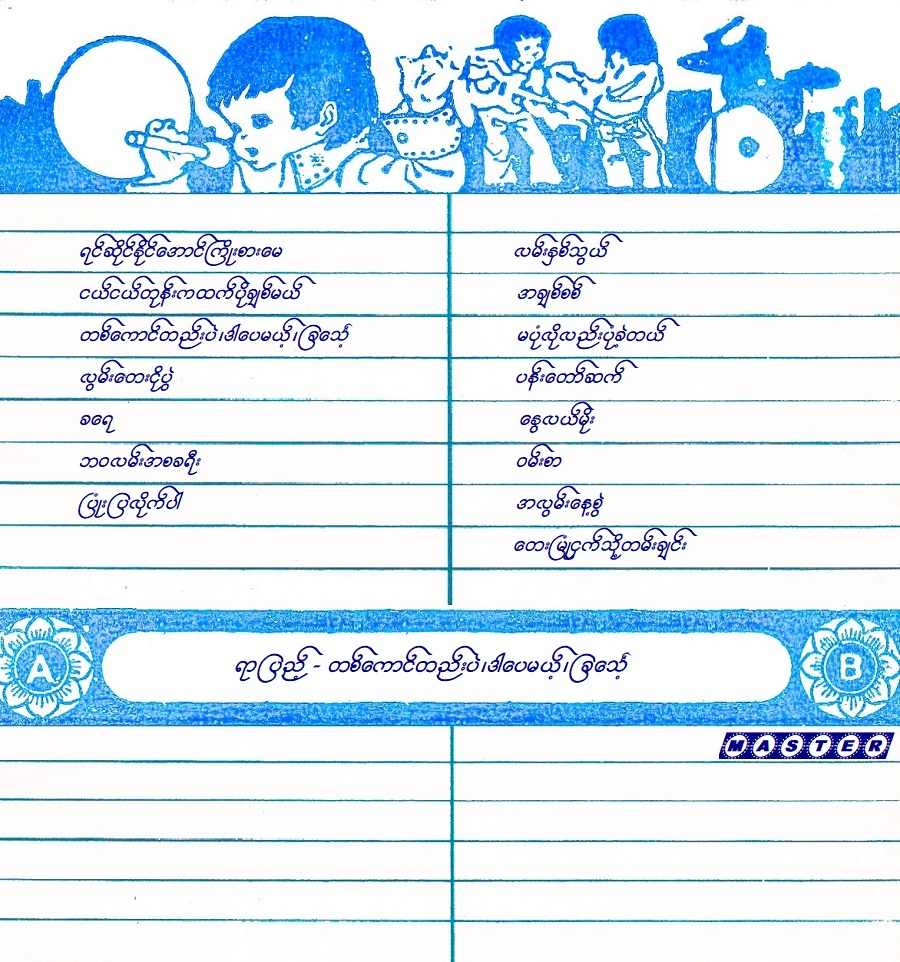 ရင်ဆိုင်နိုင်အောင်ကြိုးစားမေ
ငယ်ငယ်တုန်းကထက်ပိုချစ်မယ်
တစ်ကောင်တည်းပဲ၊ဒါပေမယ့်၊ခြင်္သေ့
လွမ်းတေးငိုပွဲ
ခရေ
ဘဝလမ်းအစခရီး
ပြုံးပြလိုက်ပါ
လမ်းနှစ်သွယ်
အချစ်စစ်
မပုံလိုလည်းပုံ့ခဲတယ်
ပန်းတော်ဆက်
နွေလယ်မိုး
ဝမ်းစာ
အလွမ်းနေ့စွဲ
တေးမြုံငှက်သို့တမ်းချင်း
A
ရာပြည့် - တစ်ကောင်တည်းပဲ၊ဒါပေမယ့်၊ခြင်္သေ့
B
MASTER